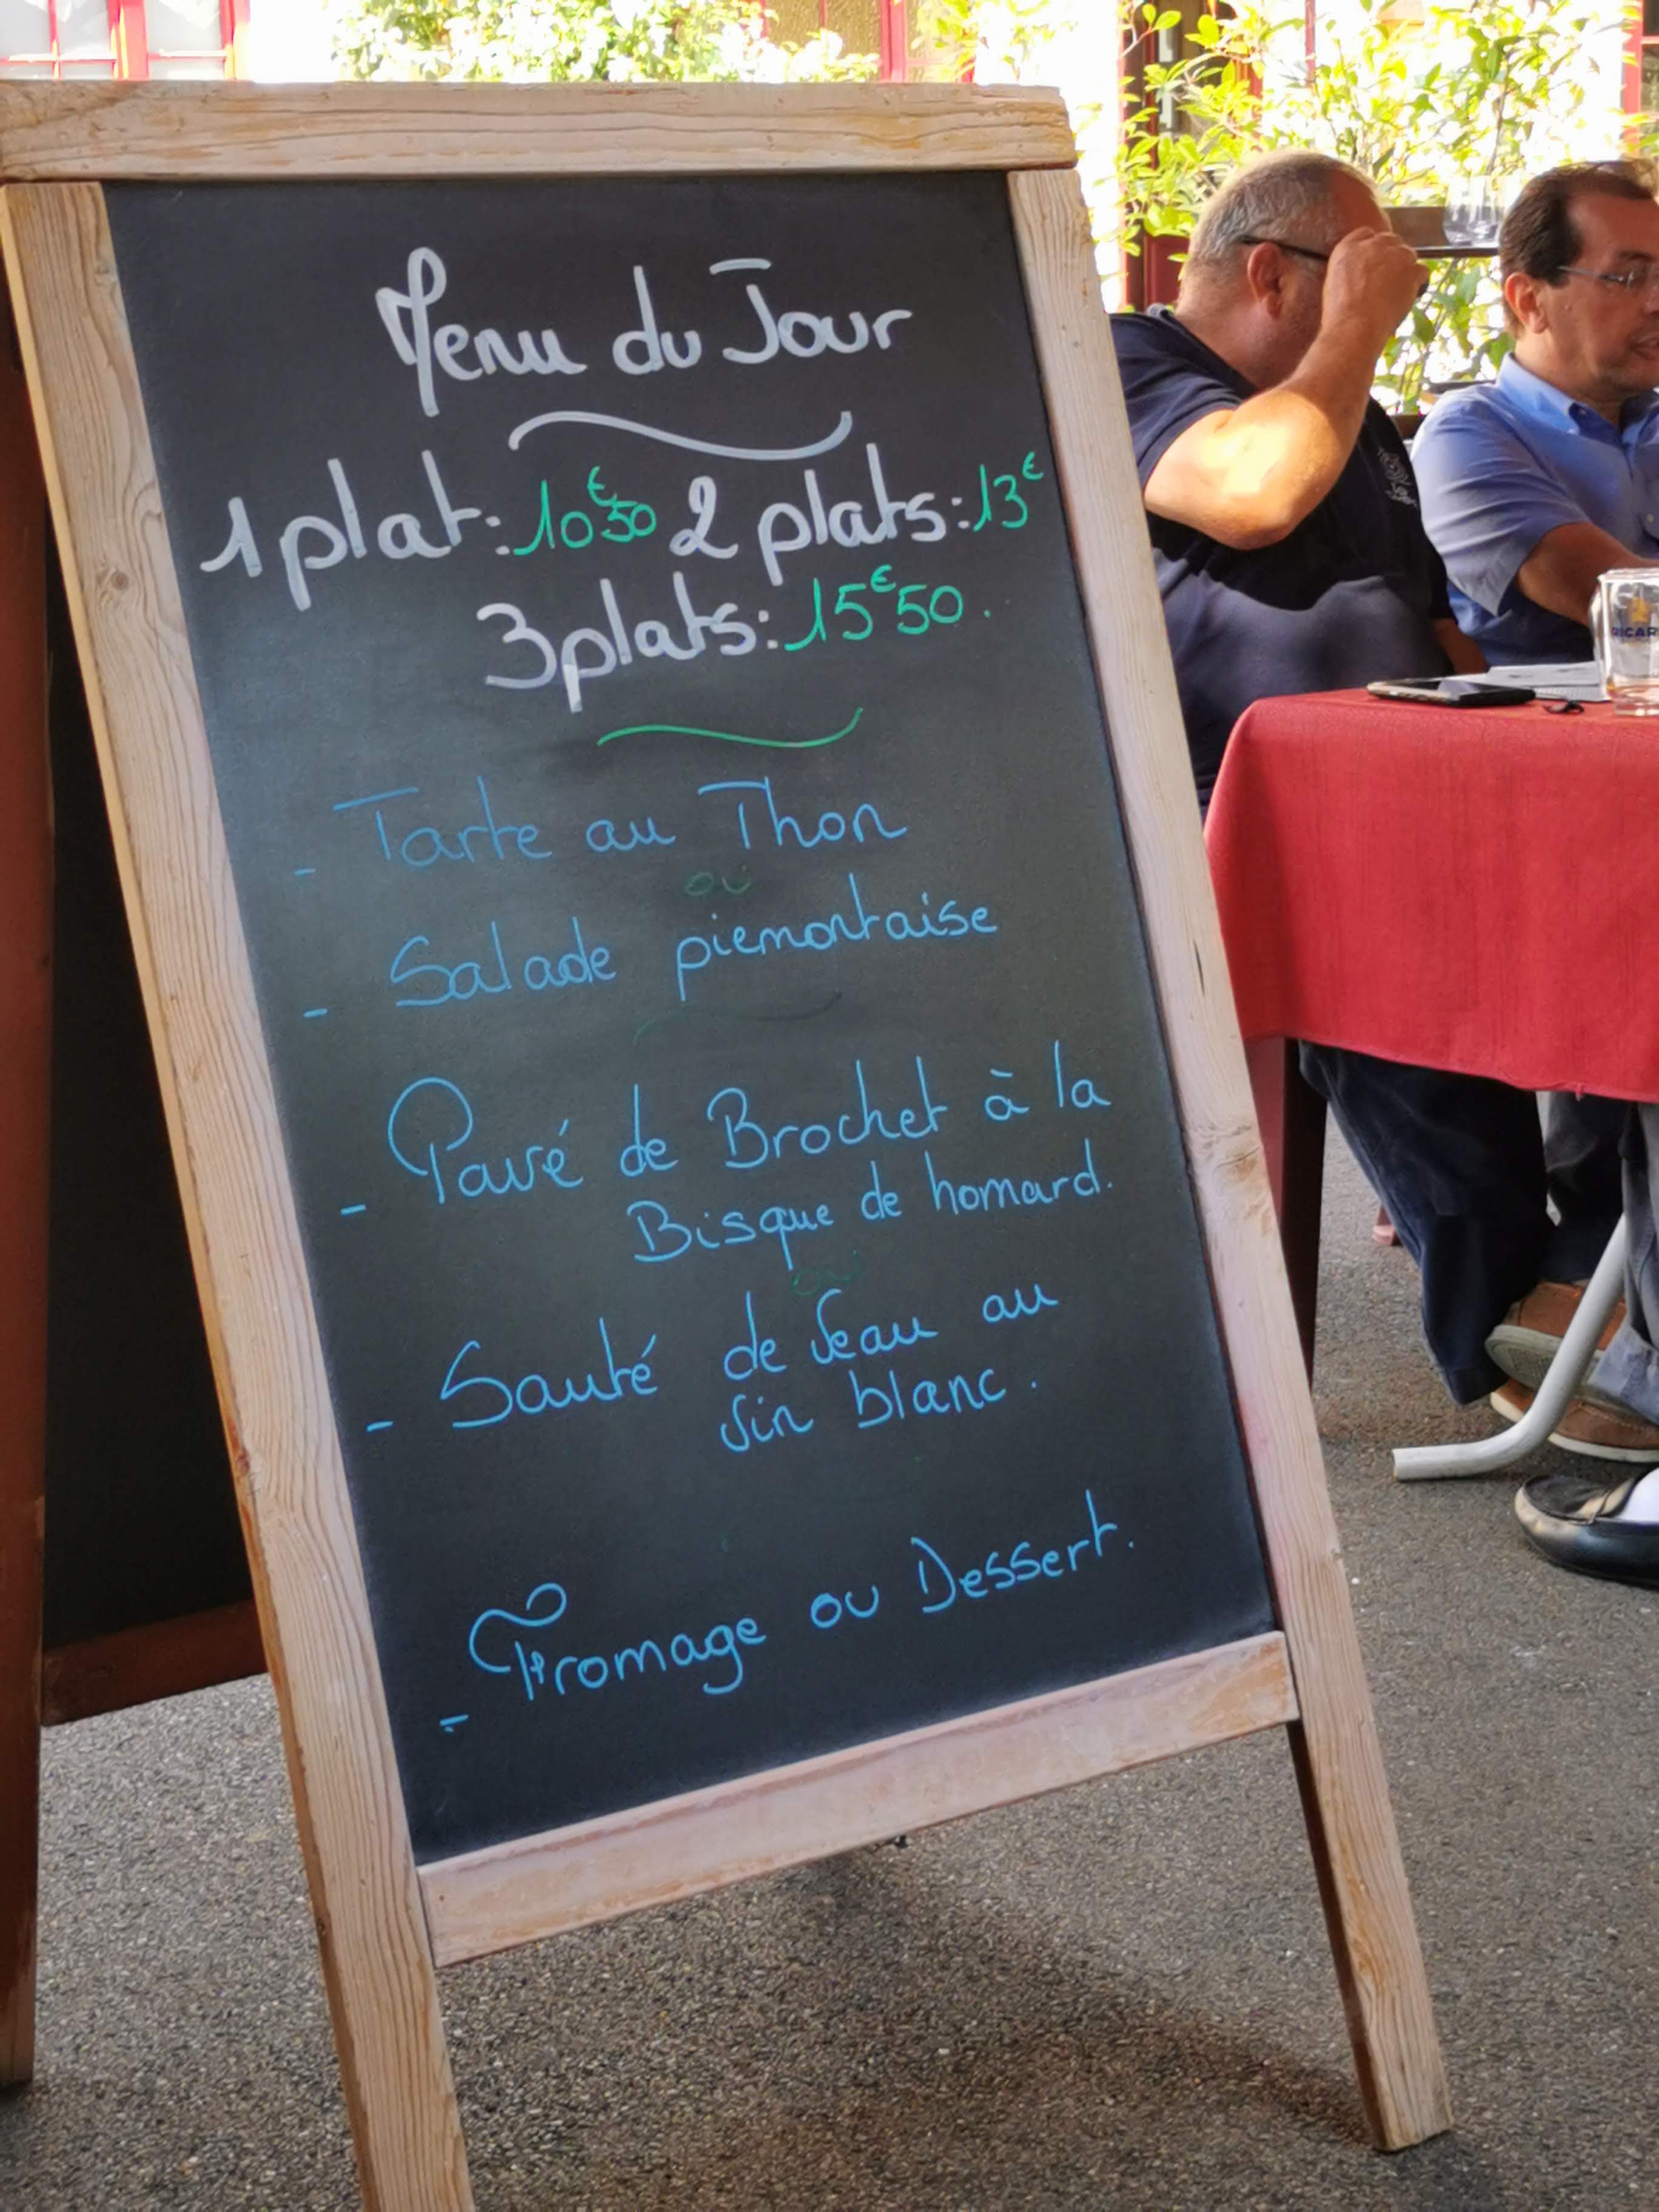 Menu du Jour
1 plat: 10€50 2 plats: 13€
3 plats: 15€50.
- Tarte au Thon
ou
- Salade piemontaise
- Pavé de Brochet à la
Bisque de homard.
ou
- Sauté de Veau au
Vin blanc.
- Fromage ou Dessert.